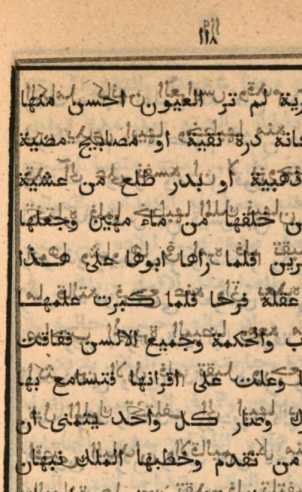 ١١٨
رية لم تر العيون احسن منها
انه درة نقية او مصابيح مضية
ذهبية او بدر طلع من عشية
ن خلقها من ماء مهين وجعلها
رين افلما راها ابوها على هذا
عقله فرحا فلما كبرت علمها
ب والحكمة وجميع الالسن ففاقت
ا وعلت على اقرانها فتسامع بها
ك وصار كل واحد يتمنى ان
من تقدم وخطبها الملك نبهان